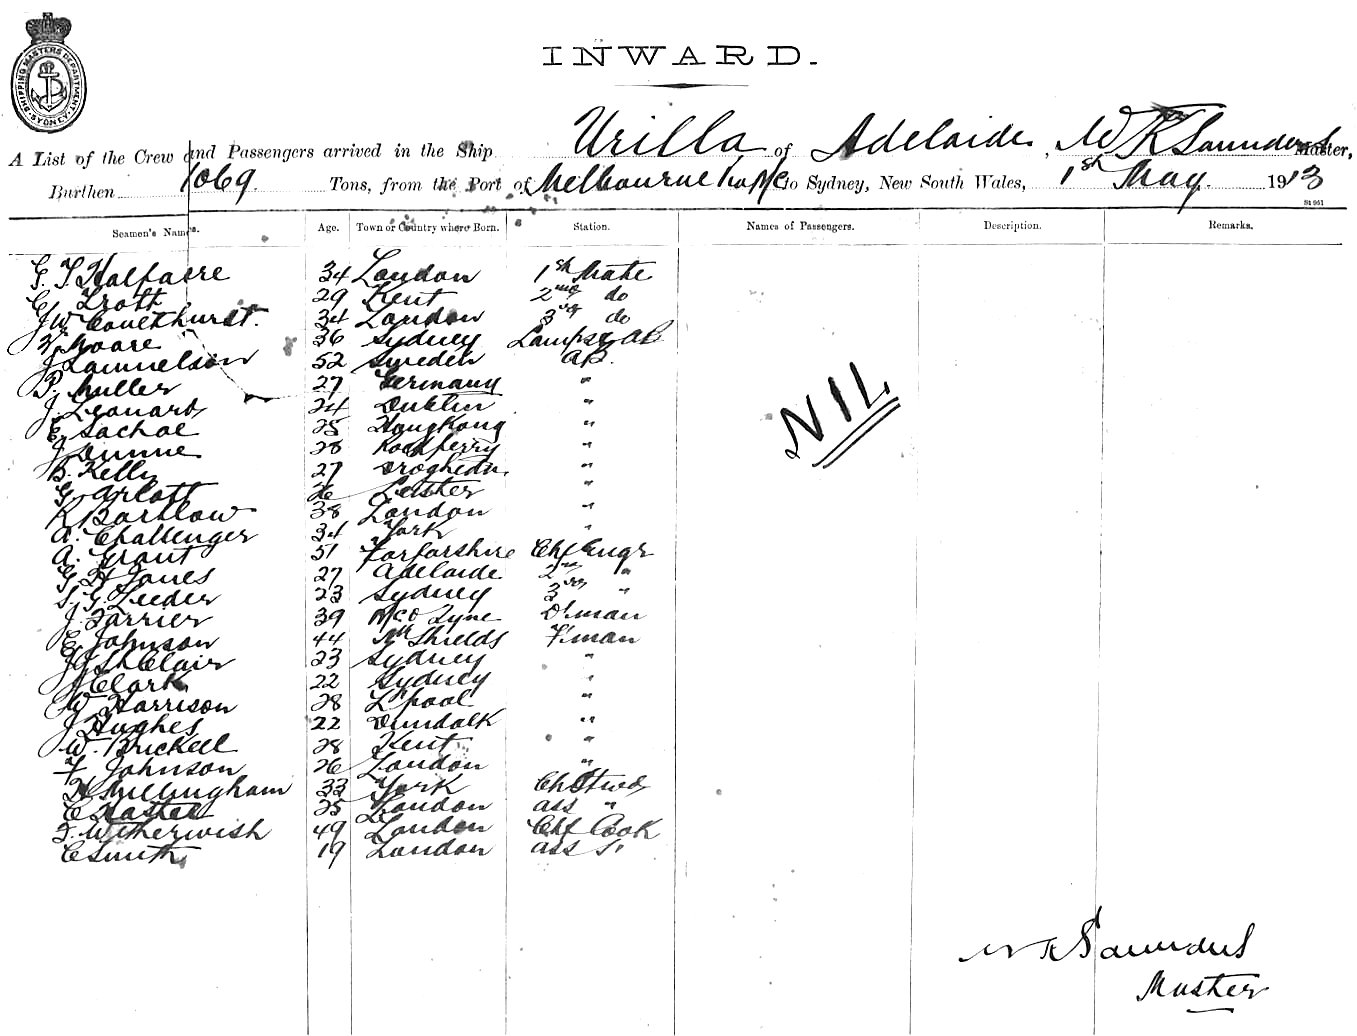 SHIPPING MASTERS DEPARTMENT SYDNEY
INWARD.
A List of the Crew and Passengers arrived in the Ship Urilla of Adelaide, W K Saunders Master,
Burthen 1069 Tons, from the Port of Melbourne to Sydney, New South Wales, 1st May. 1913
St 951
Seamen's Names. Age. Town or Country where Born. Station. Names of Passengers. Description. Remarks.
G. T Halfacre 34 London 1st Mate
G Troth 29 Kent 2nd do
J W Coulthurst. 34 London 3rd do
Hoare 36 Sydney Lamps & AB
J Samuelson 52 Sweden AB.
P. Muller 27 Germany "
J. Leonard 24 Dublin "
E. Sachae 25 HongKong "
J Dunne 28 Rockferry "
B. Kelly 27 Drogheda "
G Arlott 26 Leister "
K Barthow 38 London "
A. Challenger 34 York "
A. Grant 51 Forfarshire Chf Engr
G H Jones 27 Adelaide 2nd "
S. G. Leeder 23 Sydney 3rd "
J. Farrier 39 Nc o Tyne D'man
E. Johnson 44 Nth Shields F'man
J St Clair 23 Sydney "
J Clark 22 Sydney "
W Harrison 28 L'pool "
J Hughes 22 Dundalk "
W. Brickell 28 Kent "
F Johnson 26 London "
H Millingham 33 York Ch Stwd
C Master 25 London ass "
F. Witherwish 49 London Chf Cook
C Smith 19 London ass
NIL.
W K Saunders
Master